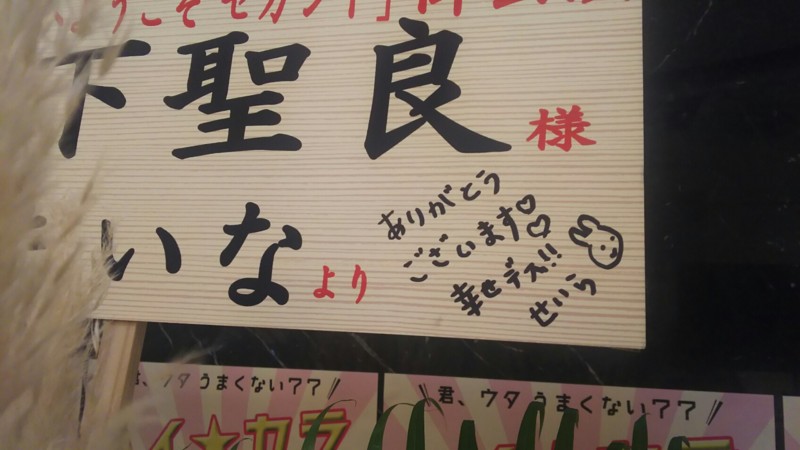 ようこそセカンド」
下聖良様
いなより
ありがとう
ございます♡♡
幸せデス!!
せいら
君、ウタうまくない??//
イ★カラ
\\君、ウタうまくない??//